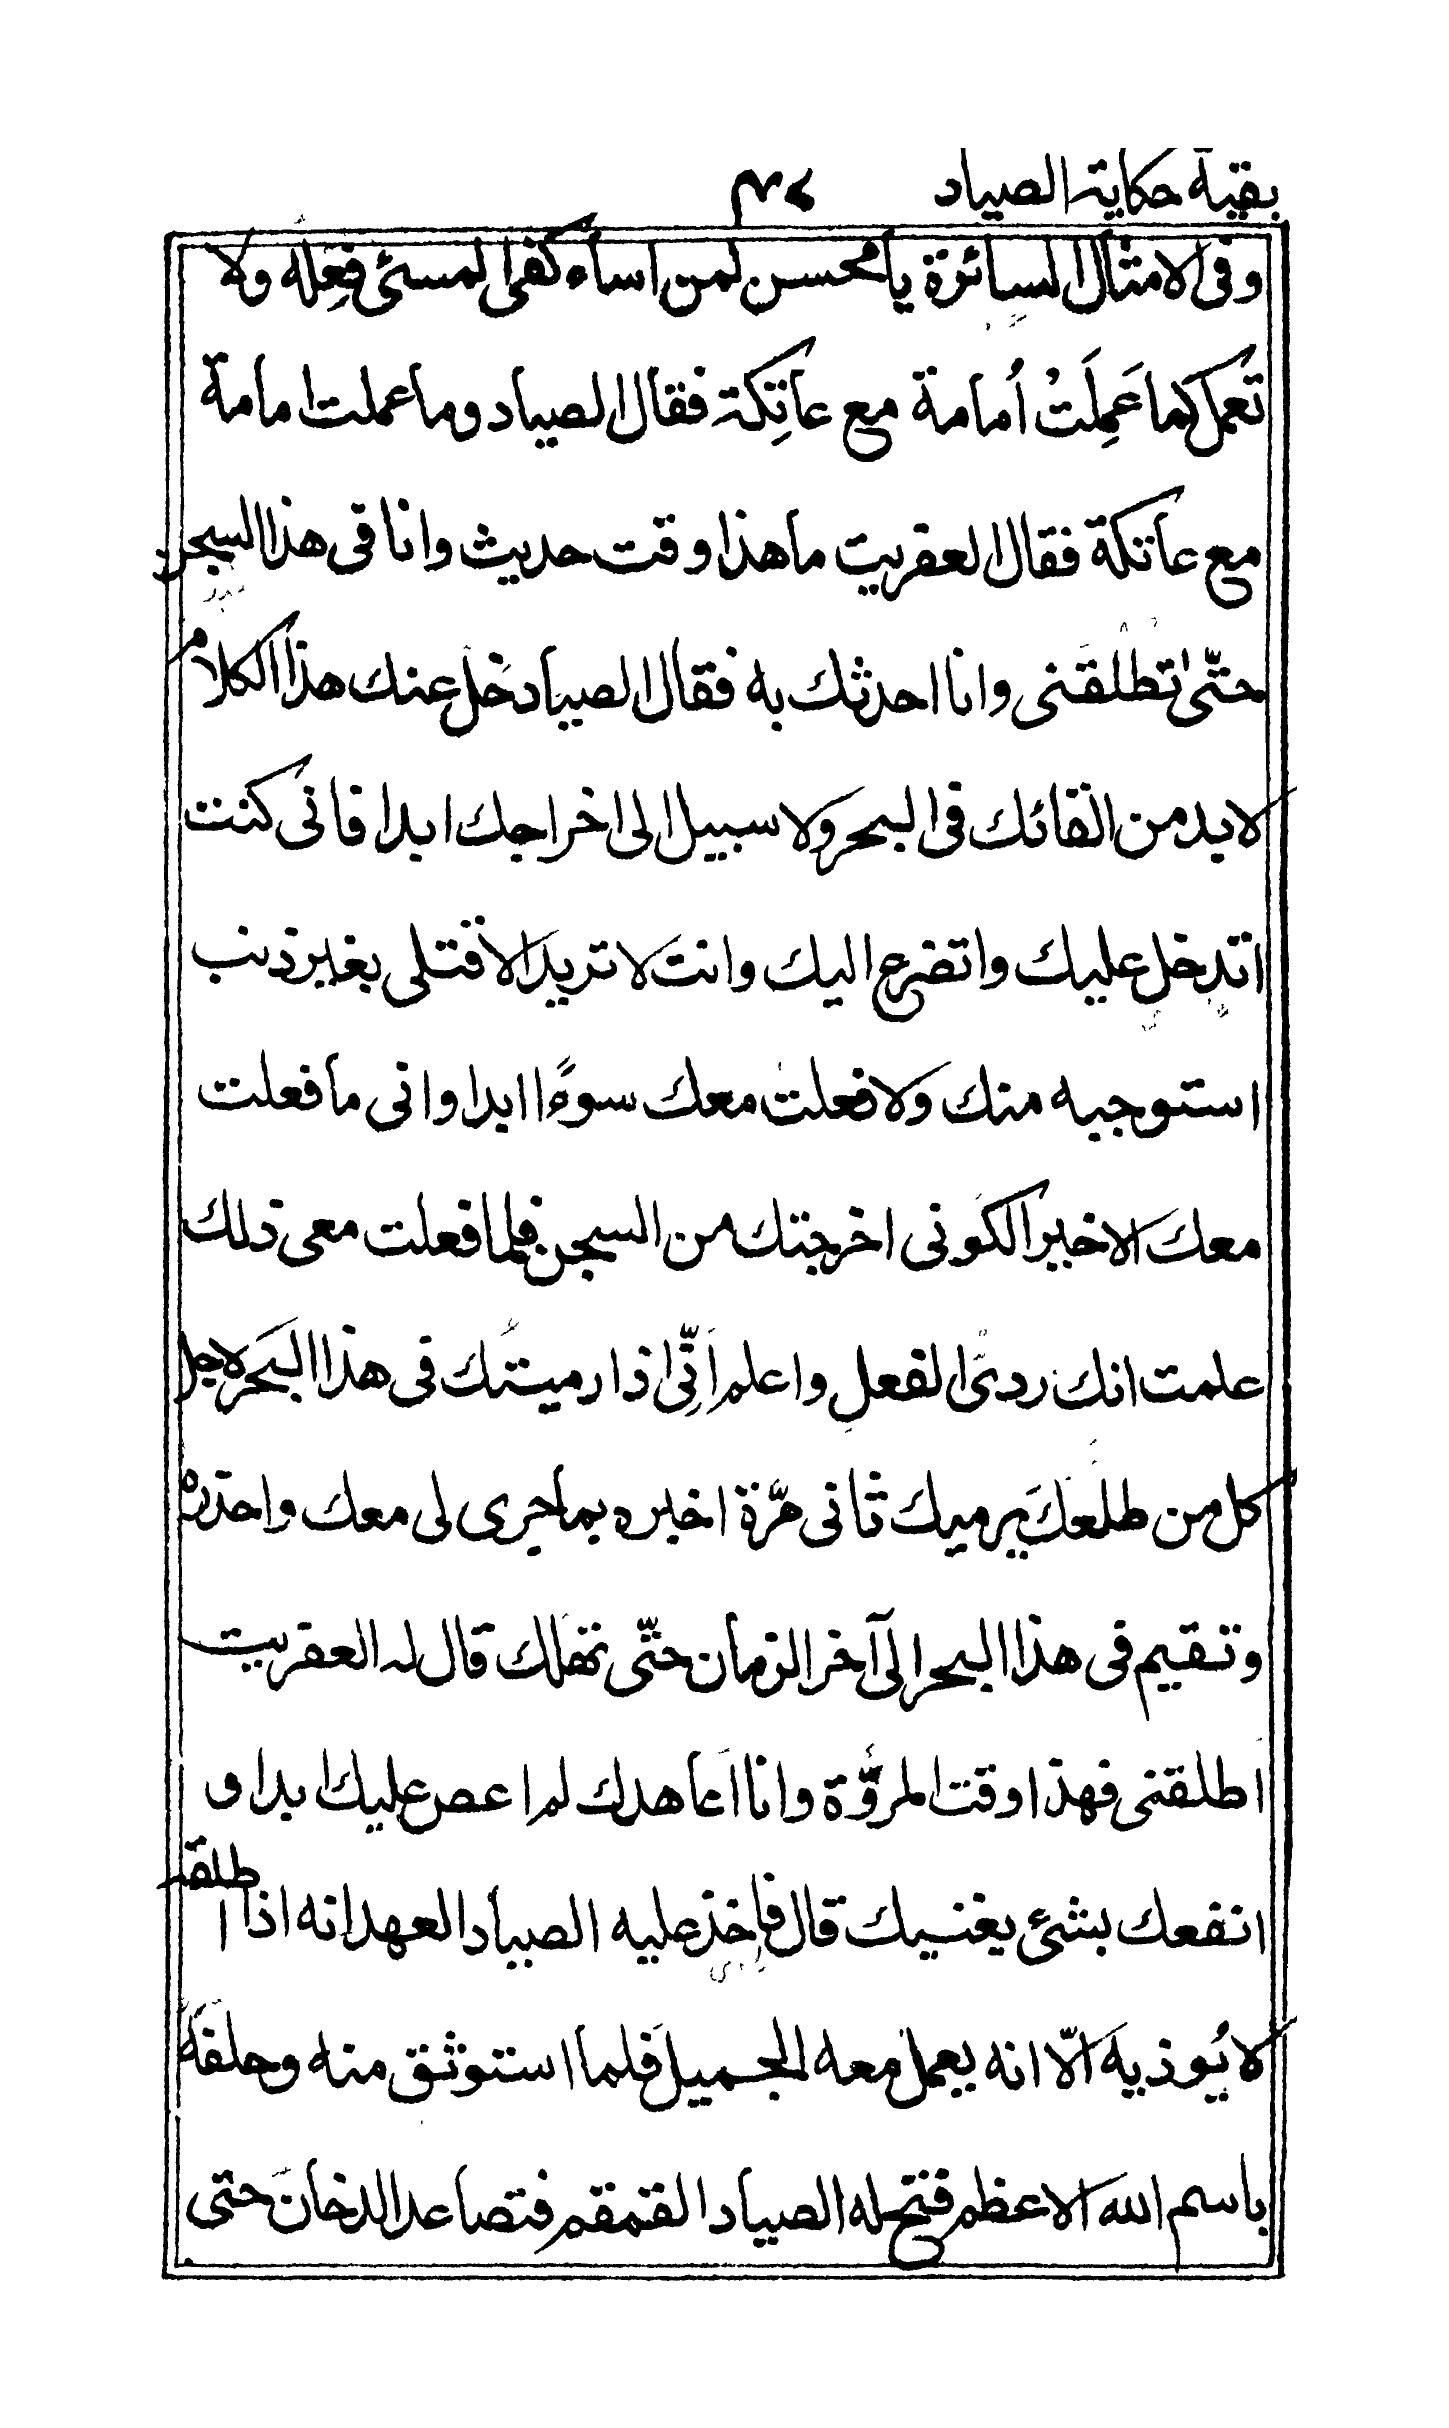 بقية حكاية الصياد ٣٤
وفى الامثال السائرة يا محسن لمن اساء كفى المسئ فِعِله ولا
تعمل كما عَمِلَتْ اُمامة مع عاتِكة فقال الصياد وما عملت امامة
مع عاتكة فقال العفريت ما هذا وقت حديث وانا فى هذا السجن
حتّى تطلقنى وانا احدثك به فقال الصياد خل عنك هذا الكلام
لا بد من القائك فى البحر ولا سبيل الى اخراجك ابدا فانى كنت
اتدخل عليك واتضرع اليك وانت لا تريد الا قتلى بغير ذنب
استوجبه منك ولا فعلت معك سوءًا ابدا وانى ما فعلت
معك الا خيرا لكونى اخرجتك من السجن فلما فعلت معى ذلك
علمت انك ردئ الفعل واعلم انّى اذا رميتك فى هذا البحر لاجل
كل من طلعك يرميك ثانى مرّة اخبره بما جرى لى معك واحذره
وتقيم فى هذا البحر الى آخر الزمان حتّى تهلك قال له العفريت
اطلقنى فهذا وقت المروّة وانا اعاهدك لم اعص عليك ابدا و
انفعك بشئ يغنيك قال فاخذ عليه الصياد العهد انه اذا اطلقه
لا يُوذيه الّا انه يعمل معه الجميل فلما استوثق منه وحلفه
باسم الله الاعظم فتح له الصياد القمقم فتصاعد الدخان حتى